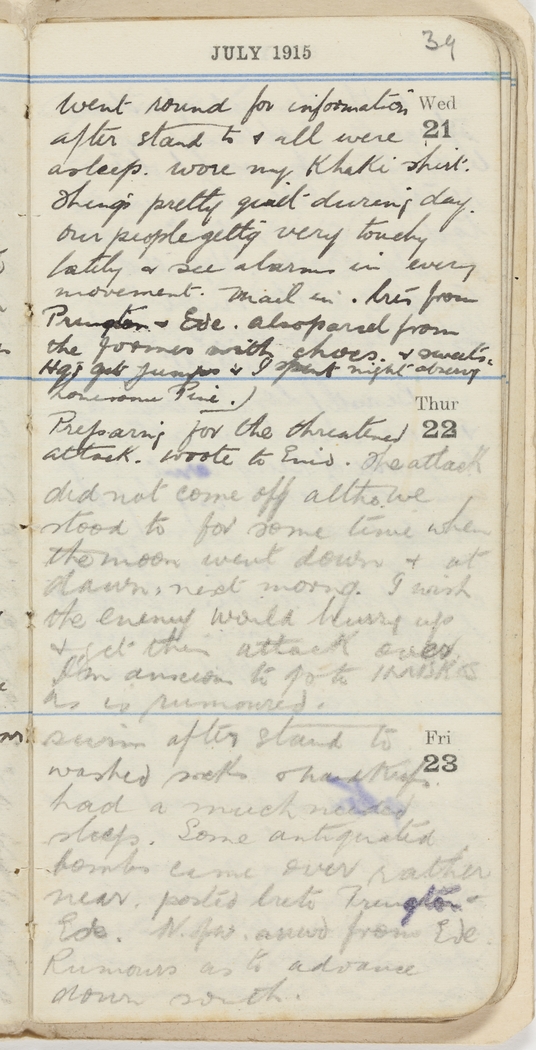 39
JULY 1915
Wed
21
Went round for information
after stand to & all were
asleep. wore my Khaki shirt.
Things pretty quiet during day.
Our people gettg very touchy
lately & see alarms in every
movement. Mail in. lres from
& Ede. also parcel from
the former with shoes. & sweets.
Hqs get jumps & I spent night observg
lonesome Pine.)
Thur
22
Preparing for the threatened
attack. wrote to Enid. The attack
did not come off altho we
stood to for some time when
the moon went down & at
dawn, next morng. I wish
the enemy would hurry up
& get their attack over.
I'm anxious to go to
as is rumoured.
Fri
23
swim after stand to
washed socks & handkfs.
had a much needed
sleep. Some antiquated
bombs came over rather
near. posted lrs to
Ede. N.pr. arrvd from Ede.
Rumours as to advance
down south.